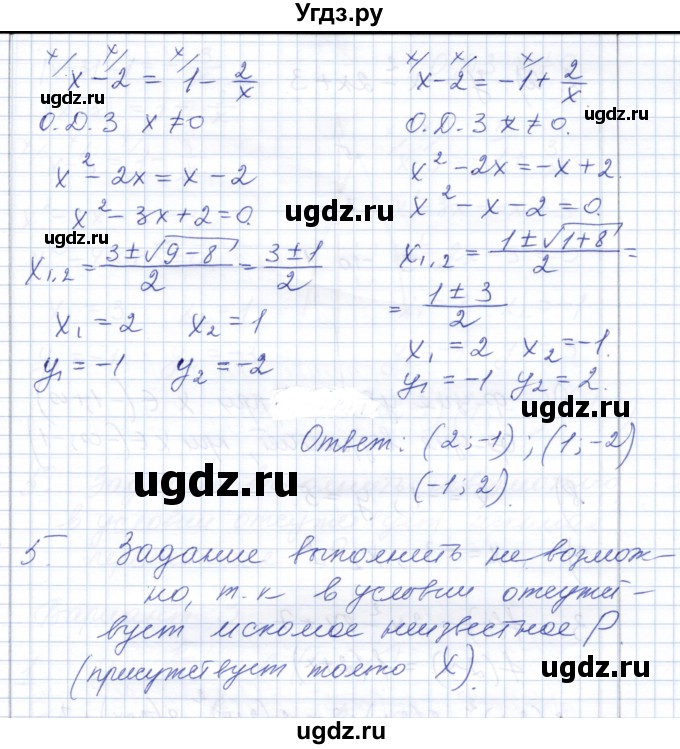 Угдз.ру
x/ x/ x/
x - 2 = 1 - 2/x
О.Д.З x ≠ 0
x² - 2x = x - 2
x² - 3x + 2 = 0.
x₁,₂ = (3 ± √(9 - 8))/2 = (3 ± 1)/2
x₁ = 2 x₂ = 1
y₁ = -1 y₂ = -2
x/ x/ x/
x - 2 = -1 + 2/x
О.Д.З x ≠ 0.
x² - 2x = -x + 2.
x² - x - 2 = 0.
x₁,₂ = (1 ± √(1 + 8))/2 =
= (1 ± 3)/2
x₁ = 2 x₂ = -1.
y₁ = -1 y₂ = 2.
Ответ: (2; -1); (1; -2)
(-1; 2).
5. Задание выполнить не возмож-
но, т.к в условии отсутст-
вует искомое неизвестное p
(присутствует только X).
ugdz.ru
ugdz.ru
ugdz.ru
ugdz.ru
ugdz.ru
ugdz.ru
ugdz.ru
ugdz.ru
ugdz.ru
ugdz.ru